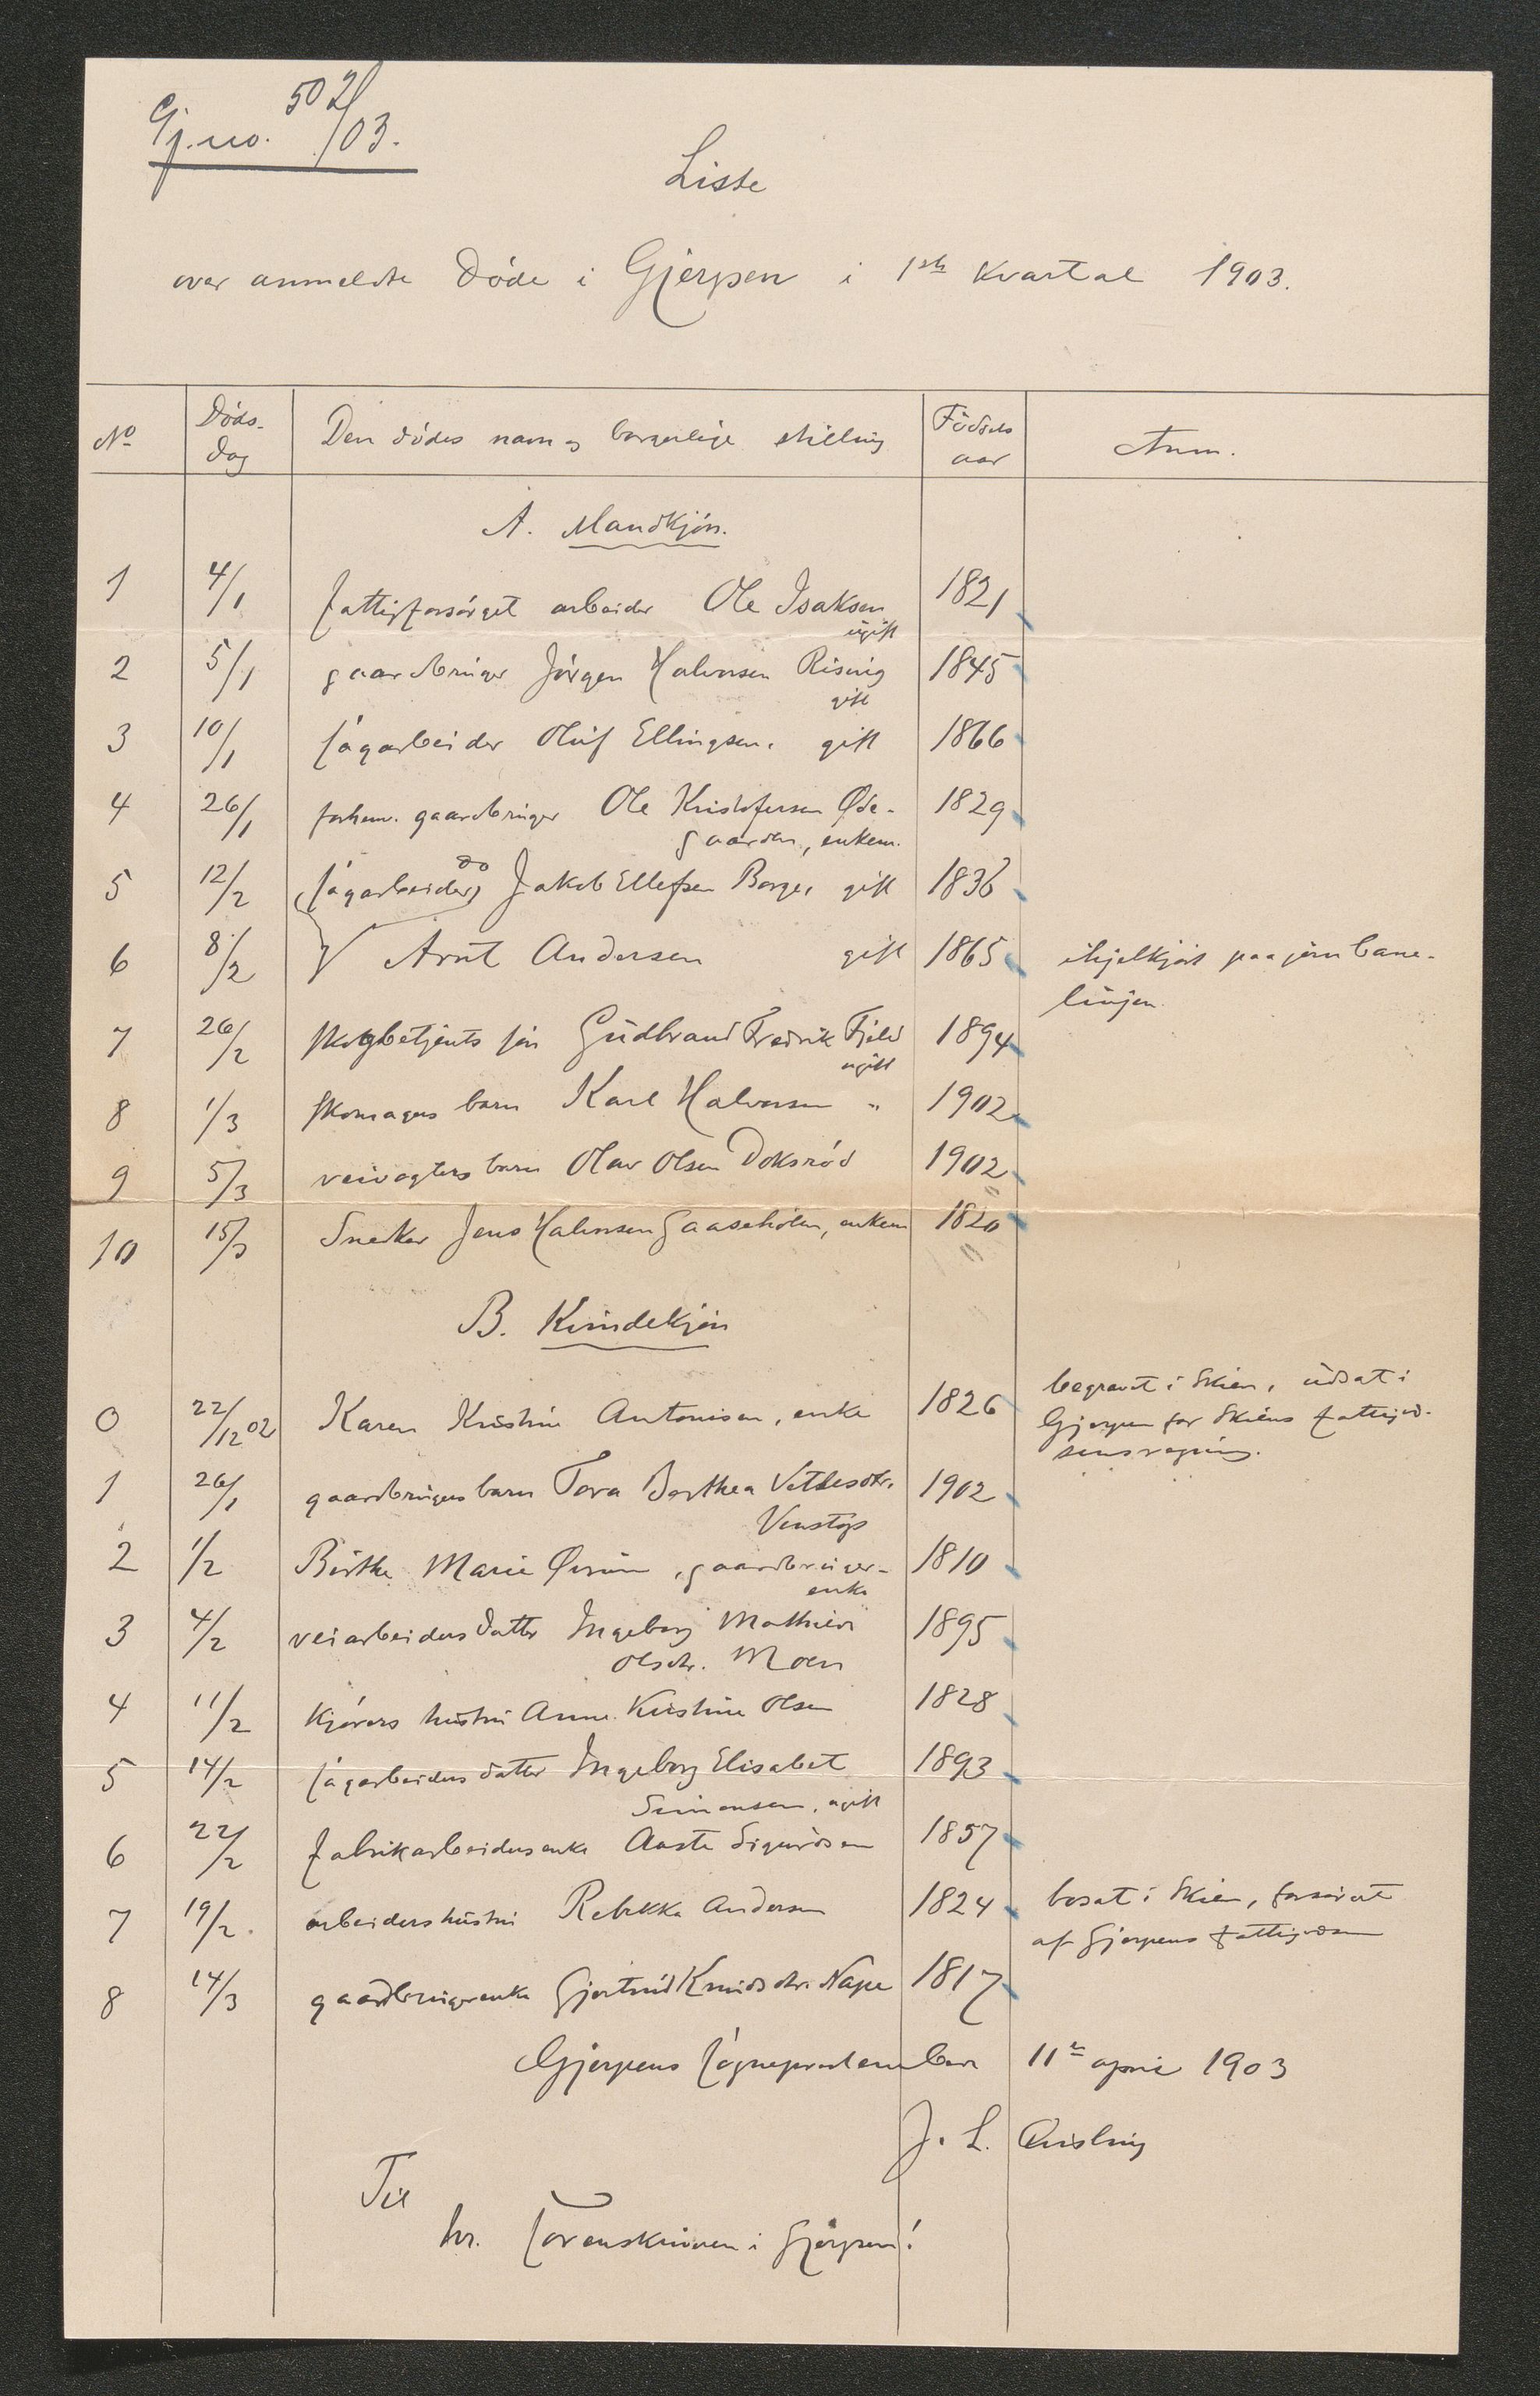 Gj. no. 502/03.
Liste
over anmeldte døde i Gjerpen i 1ste kvartal 1903.
No Døds- dag Den dødes navn og borgerlige stilling Fødsels aar Anm.
A. Mandkjøn.
1 4/1 fattigforsørget arbeider Ole Isaksen 1821
ugift
2 5/1 gaardbruger Jørgen Halvorsen Rising 1845
gift
3 10/1 sagarbeider Oluf Ellingsen, gift 1866
4 26/1 forhenv. gaardbruger Ole Kristofersen Øde- 1829
gaarden, enkem.
5 12/2 (sagarbeider) do Jakob Ellefsen Borge, gift 1836
6 8/2 Arnt Andersen gift 1865 ihjelkjørt paa jernbane-
linjen.
7 26/2 skogbetjents søn Gudbrand Fredrik Fjeld 1894
ugift
8 1/3 skomagers barn Karl Halvorsen " 1902
9 5/3 veivogters barn Olav Olsen Doksrød 1902
10 15/3 Snedker Jens Halvorsen Gaaseholm, enkem 1820
B. Kvindekjøn
0 22/12 02 Karen Kristine Antonisen, enke 1826 begravet i Skien, udsat i
Gjerpen for Skiens fattigvæ-
sens regning.
1 26/1 gaardbrugers barn Tora Berthea Vetlesdtr. 1902
Venstøp
2 1/2 Birthe Marie Øverum, gaardbruger- 1810
enke
3 4/2 veiarbeiders datter Ingeborg Mathilde 1895
Olsdtr. Moen
4 11/2 kjørers hustru Anne Kristine Olsen 1828
5 14/2 sagarbeiders datter Ingeborg Elisabet 1893
Simonsen, ugift
6 22/2 fabrikarbeidersenke Aaste Sigurdsen 1857
7 19/2. arbeiders hustru Rebekka Andersen 1824 bosat i Skien, forsørget
af Gjerpens fattigvæsen
8 14/3 gaardbrugerenke Gjertrud Knudsdtr. Nape 1817
Gjerpens sogneprestembede 11te april 1903
J. L. Quisling
Til
hr. Sorenskriveren i Gjerpen!